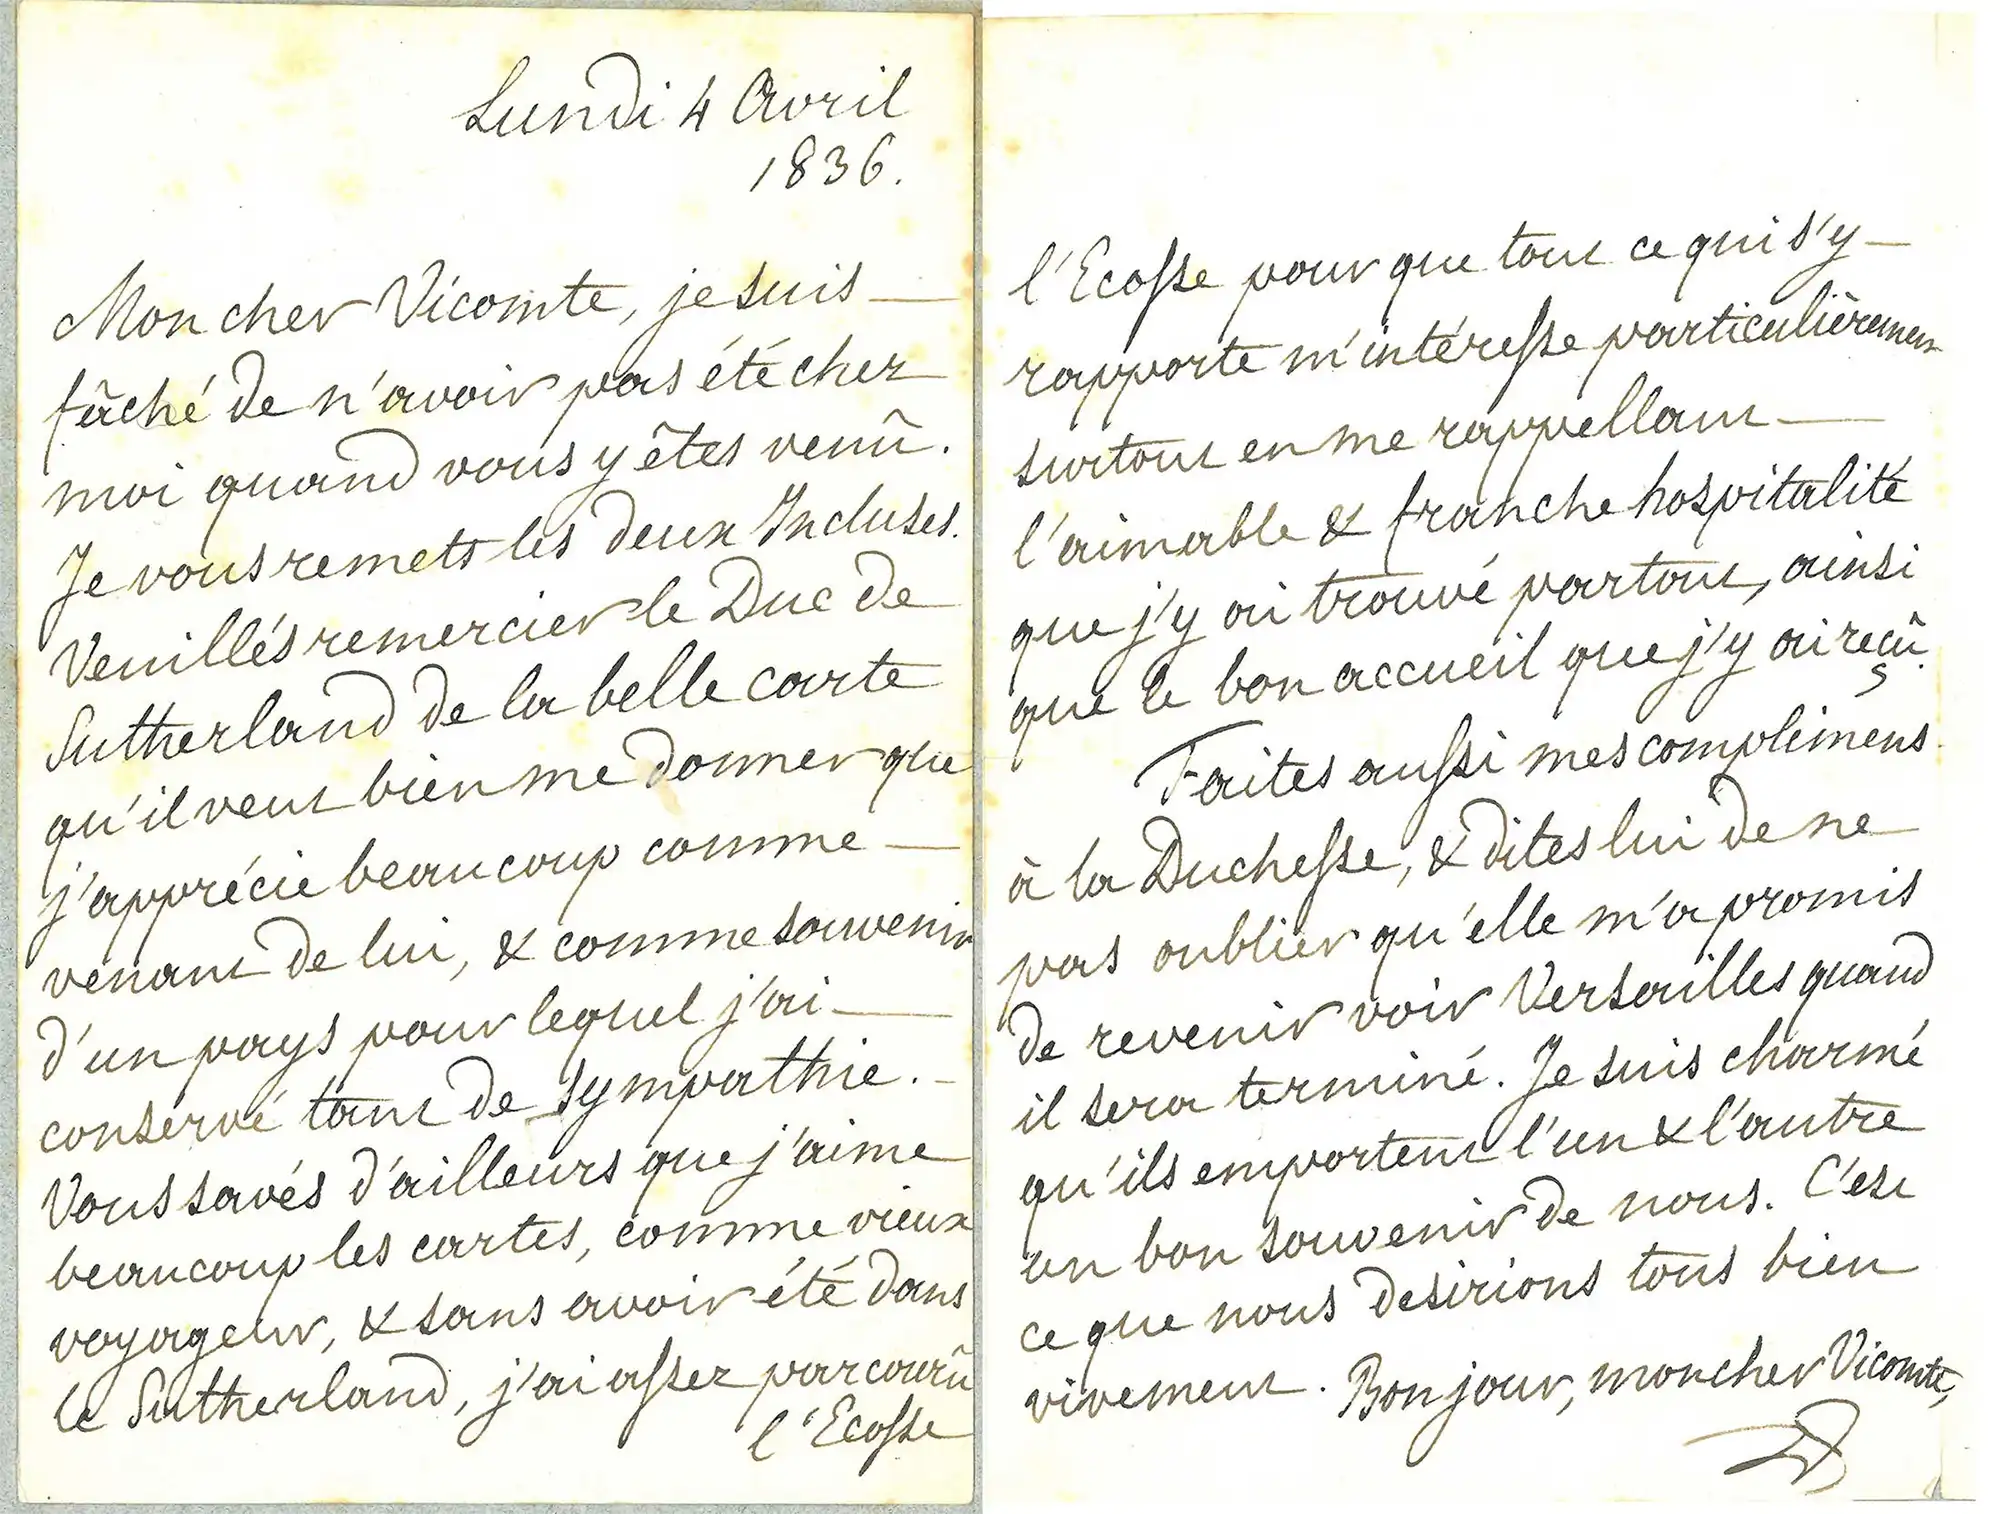 Lundi 4 Avril
1836.
Mon cher Vicomte, je suis —
fâché de n'avoir pas été chez
moi quand vous y êtes venû.
Je vous remets les deux Incluses.
Veuillés remercier le Duc de
Sutherland de la belle carte
qu'il veut bien me donner que
j'apprécie beaucoup comme —
venant de lui, & comme souvenir
d'un pays pour lequel j'ai —
conservé tant de sympathie. -
Vous savés d'ailleurs que j'aime
beaucoup les cartes, comme vieux
voyageur, & sans avoir été dans
le Sutherland, j'ai assez parcourû
l'Ecosse
l'Ecosse pour que tout ce qui s'y —
rapporte m'intéresse particulièrement
surtout en me rappellant —
l'aimable & franche hospitalité
que j'y ai trouvé partout, ainsi
que le bon accueil que j'y ai reçû.
Faites aussi mes complimens
à la Duchesse, & dites lui de ne
pas oublier qu'elle m'a promis
de revenir voir Versailles quand
il sera terminé. Je suis charmé
qu'ils emportent l'un & l'autre
un bon souvenir de nous. C'est
ce que nous desirions tous bien
vivement. Bonjour, mon cher Vicomte,